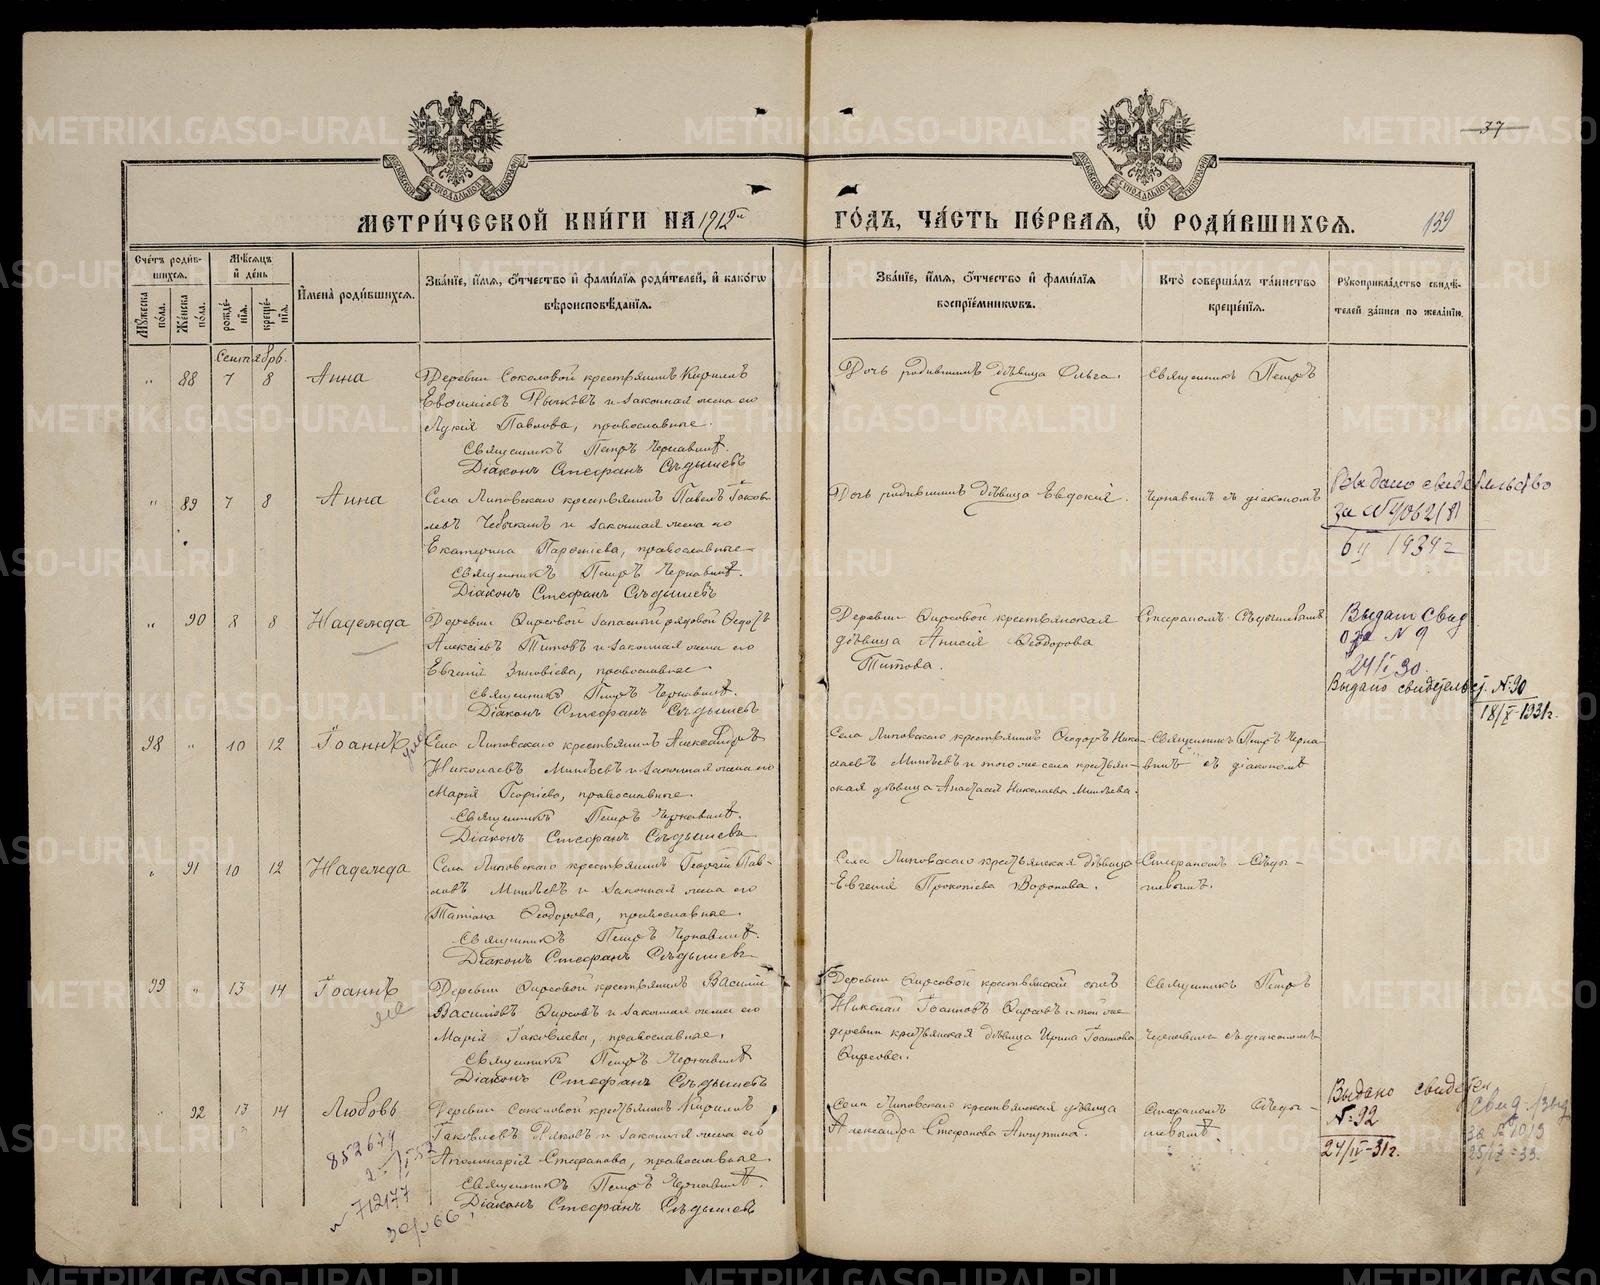 37
МЕТРИ́ЧЕСКОЙ КНИ́ГИ НА 1912й ГО́ДЪ, ЧА́СТЬ ПЕ́РВАЯ, Ѡ РОДИ́ВШИХСЯ.
139
Сче́тъ роди́вшихся.
Мꙋ́жеска по́ла.
Же́нска по́ла.
Мѣ́сяцъ и́ де́нь
рожде́нїя.
креще́нїя.
И҆мена̀ роди́вшихся.
Зва́нїе, и҆́мя, ѻ҆́тчество и҆ фами́лїя роди́телей, и҆ како́гѡ
вѣроисповѣ́данїя.
Зва́нїе, и҆́мя, ѻ҆́тчество и҆ фами́лїя
воспрїе́мникѡвъ.
Кто̀ соверша́лъ та́инство
креще́нїя.
Рꙋкоприкла́дство свидѣ́-
телей за́писи по жела́нїю.
Сентябрь.
" 88 7 8 Анна
Деревни Соколовой крестьянинъ Кириллъ
Евѳиміевъ и законная жена его
Лукія Павлова, православные.
Священникъ Петръ Чернавинъ.
Діаконъ Стефанъ Сѣдышевъ
Дочь родившимъ дѣвица Ольга.
Священникъ Петръ
" 89 7 8 Анна
Села Липовскаго крестьянинъ Павелъ Іаков-
левъ Чебыкинъ и законная жена его
Екатерина Парѳеніева, православные
Священникъ Петръ Чернавинъ.
Діаконъ Стефанъ Сѣдышевъ
Дочь родившимъ дѣвица Евдокія.
Чернавинъ съ діакономъ
Выдано свидетельство
за № 9062(8)
6/II 1939 г
" 90 8 8 Надежда
Деревни Фирсовой запасный рядовой Ѳедотъ
Алексіевъ Титовъ и законная жена его
Евгенія Зиновіева, православные
Священникъ Петръ Чернавинъ.
Діаконъ Стефанъ Сѣдышевъ
Деревни Фирсовой крестьянская
дѣвица Анисія Ѳеодорова
Титова.
Стефаномъ Сѣдышевымъ
Выдат свид
за № 9
24/I 30.
Выдано свидетельст. № 90
18/X-1931г.
98 " 10 12 Іоаннъ
Села Липовскаго крестьянинъ Александръ
Николаевъ Минѣевъ и законная жена его
Марія Георгіева, православные.
Священникъ Петръ Чернавинъ.
Діаконъ Стефанъ Сѣдышевъ
Села Липовскаго крестьянинъ Ѳеодоръ Нико-
лаевъ Минѣевъ и того же села крестьян-
ская дѣвица Анастасія Николаева Минѣева.
Священникъ Петръ Черна-
винъ съ діакономъ
" 91 10 12 Надежда
Села Липовскаго крестьянинъ Георгій Пав-
ловъ Минѣевъ и законная жена его
Татіана Ѳеодорова, православные.
Священникъ Петръ Чернавинъ.
Діаконъ Стефанъ Сѣдышевъ
Села Липовскаго крестьянская дѣвица
Евгенія Прокопіева Воронова.
Стефаномъ Сѣды-
шевымъ.
99 " 13 14 Іоаннъ
Деревни Фирсовой крестьянинъ Василій
Василіевъ Фирсовъ и законная жена его
Марія Іаковлева, православные.
Священникъ Петръ Чернавинъ
Діаконъ Стефанъ Сѣдышевъ
Деревни Фирсовой крестьянскій сынъ
Николай Іоанновъ Фирсовъ и той же
деревни крестьянская дѣвица Ирина Іоаннова
Фирсова.
Священникъ Петръ
Чернавинъ съ діакономъ
" 92 13 14 Любовь
Деревни Соколовой крестьянинъ Кириллъ
Іаковлевъ и законная жена его
Аполлинарія Стефанова, православные.
Священникъ Петръ Чернавинъ.
Діаконъ Стефанъ Сѣдышевъ
Села Липовскаго крестьянская дѣвица
Александра Стефанова
Стефаномъ Сѣды-
шевымъ.
Выдано свидетел
№ 92
24/IV-31г.
Свид. выд
за № 1013
25/IX-33.
852679
№ 712177